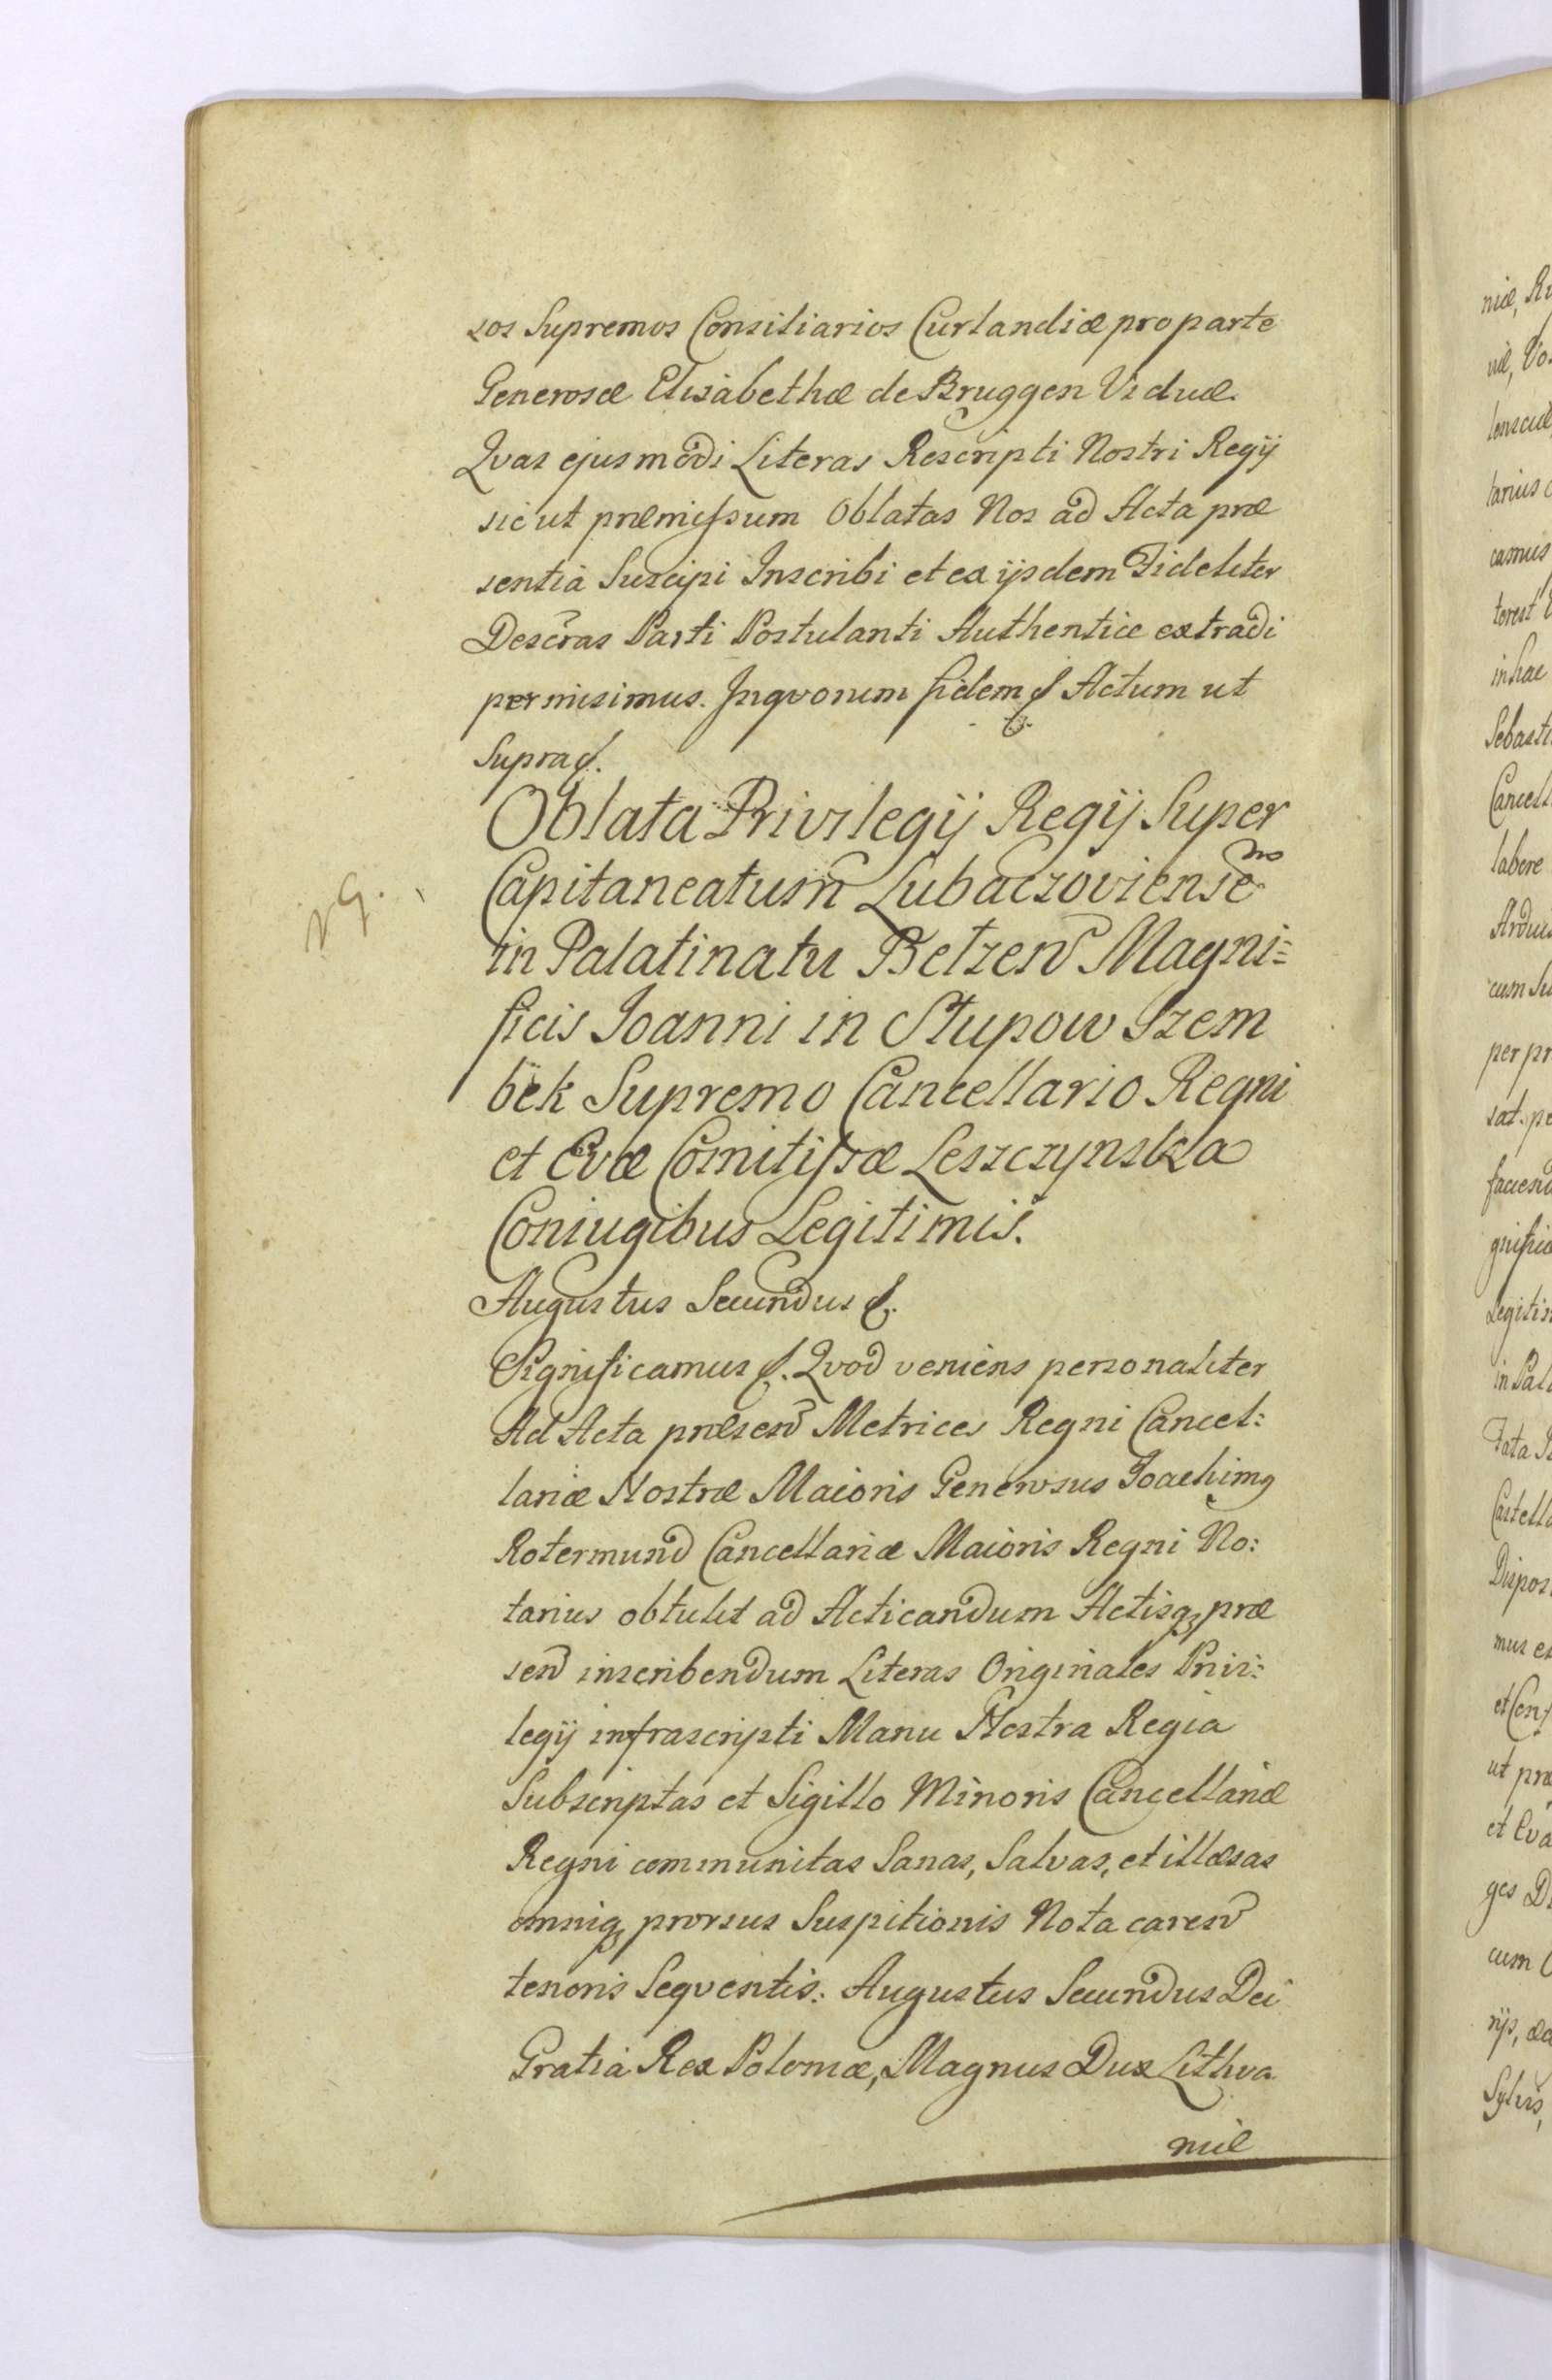 sos Supremos Consiliarios Curlandiæ pro parte
Generosæ Elisabethæ de Bruggen Viduæ.
Qvas ejusmodi Literas Rescripti Nostri Regij
sic ut præmissum Oblatas Nos ad Acta præ
sentia Suscipi Inscribi et ex ijsdem Fideliter
Descras Parti Postulanti Authentice extradi
permisimus. Inqvorum fidem &. Actum ut
Supra &.
Oblata Privilegij Regij Super
Capitaneatum Lubaczoviense
in Palatinatu Belzen Magni=
ficis Joanni in Słupow Szem
bek Supremo Cancellario Regni
et Evæ Comitissæ Leszczynska
Coniugibus Legitimis.
Augustus Secundus &.
Significamus &. Qvod veniens personaliter
Ad Acta præsen Metrices Regni Cancel:
lariæ Nostræ Maioris Generosus Joachimq
Rotermund Cancellariæ Maioris Regni No:
tarius obtulit ad Acticandum Actisq præ
sen inscribendum Literas Originales Privi:
legij infrascripti Manu Nostra Regia
Subscriptas et Sigillo Minoris Cancellariæ
Regni communitas Sanas, Salvas, et illæsas
omniq prorsus Suspitionis Nota caren
tenoris Seqventis: Augustus Secundus Dei
Gratia Rex Poloniæ, Magnus Dux Lithva
niæ
niæ, Ru
Vo
camus
terest
in hac
Sebasti
Cancell
labore
Ardui
cum Su
per pr
sat: pe
facien
gnific
Legitim
in Pala
Castella
Dispos
mus ex
ut præ
et Eva
ges D
cum
Sylvis,